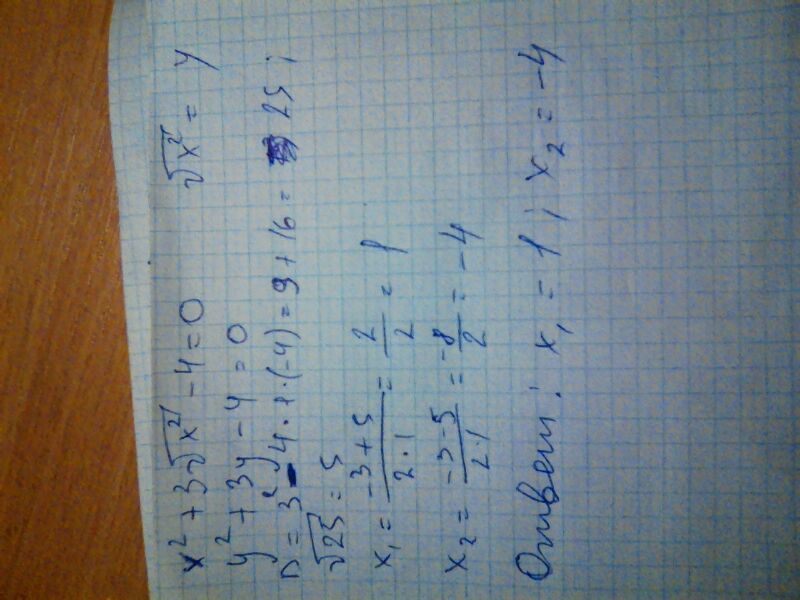 x² + 3√x² - 4 = 0 √x² = y
y² + 3y - 4 = 0
D = 3² - 4·1·(-4) = 9 + 16 = 25;
√25 = 5
x₁ = (-3+5)/(2·1) = 2/2 = 1
x₂ = (-3-5)/(2·1) = -8/2 = -4
Ответ: x₁ = 1; x₂ = -4